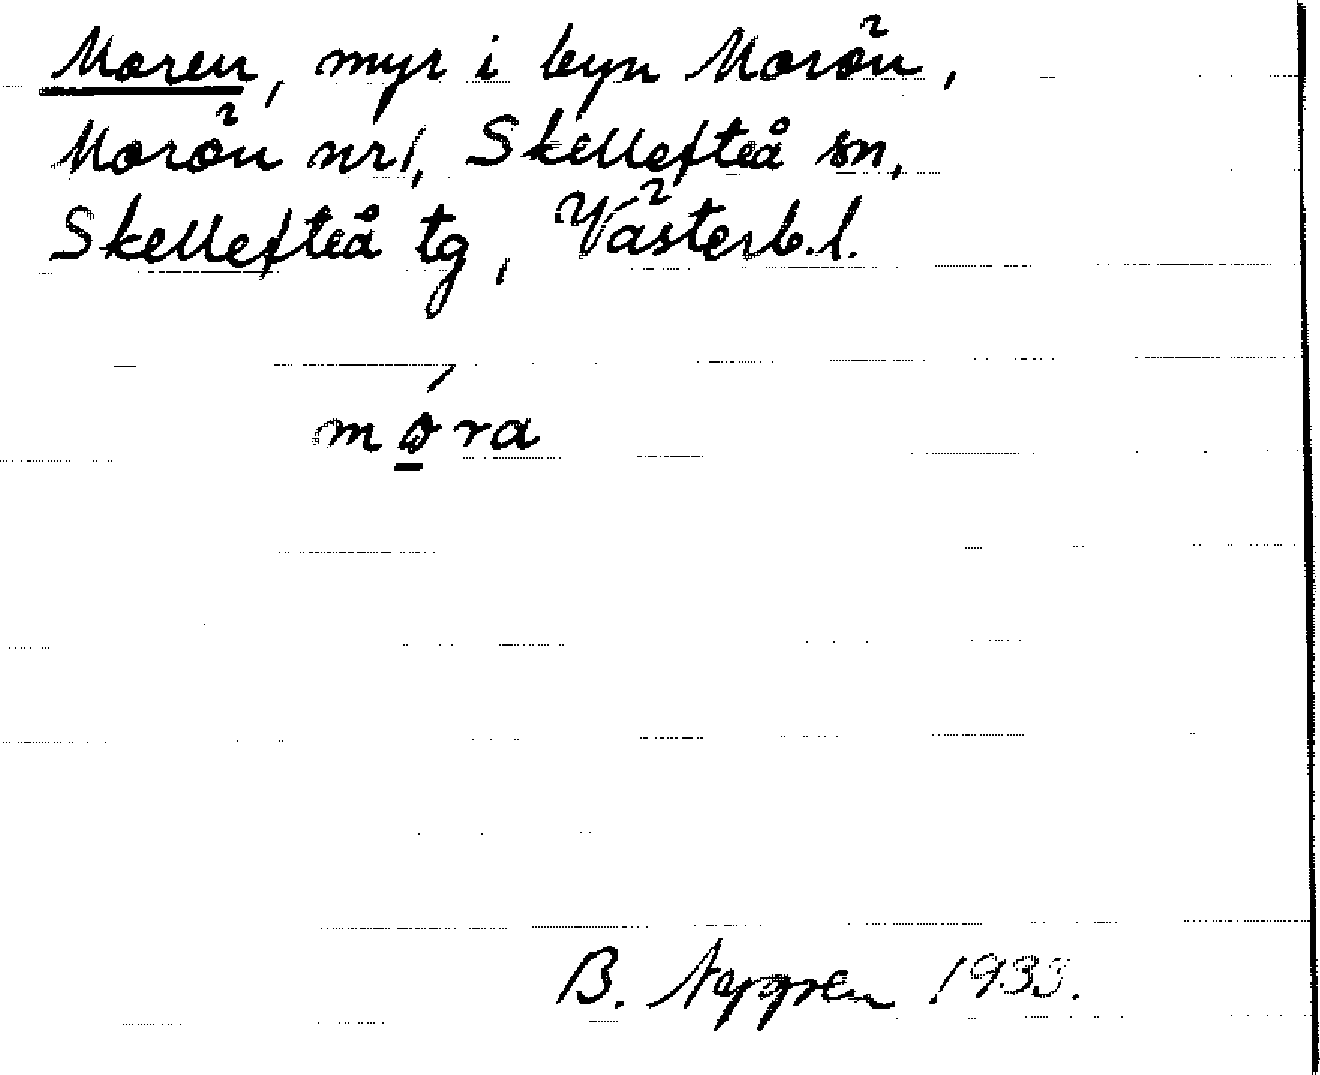 Moren, myr i byn Morön,
Morön nr 1, Skellefteå sn,
Skellefteå tg, Västerb.l.
mǿ̲ra
B. 1933.